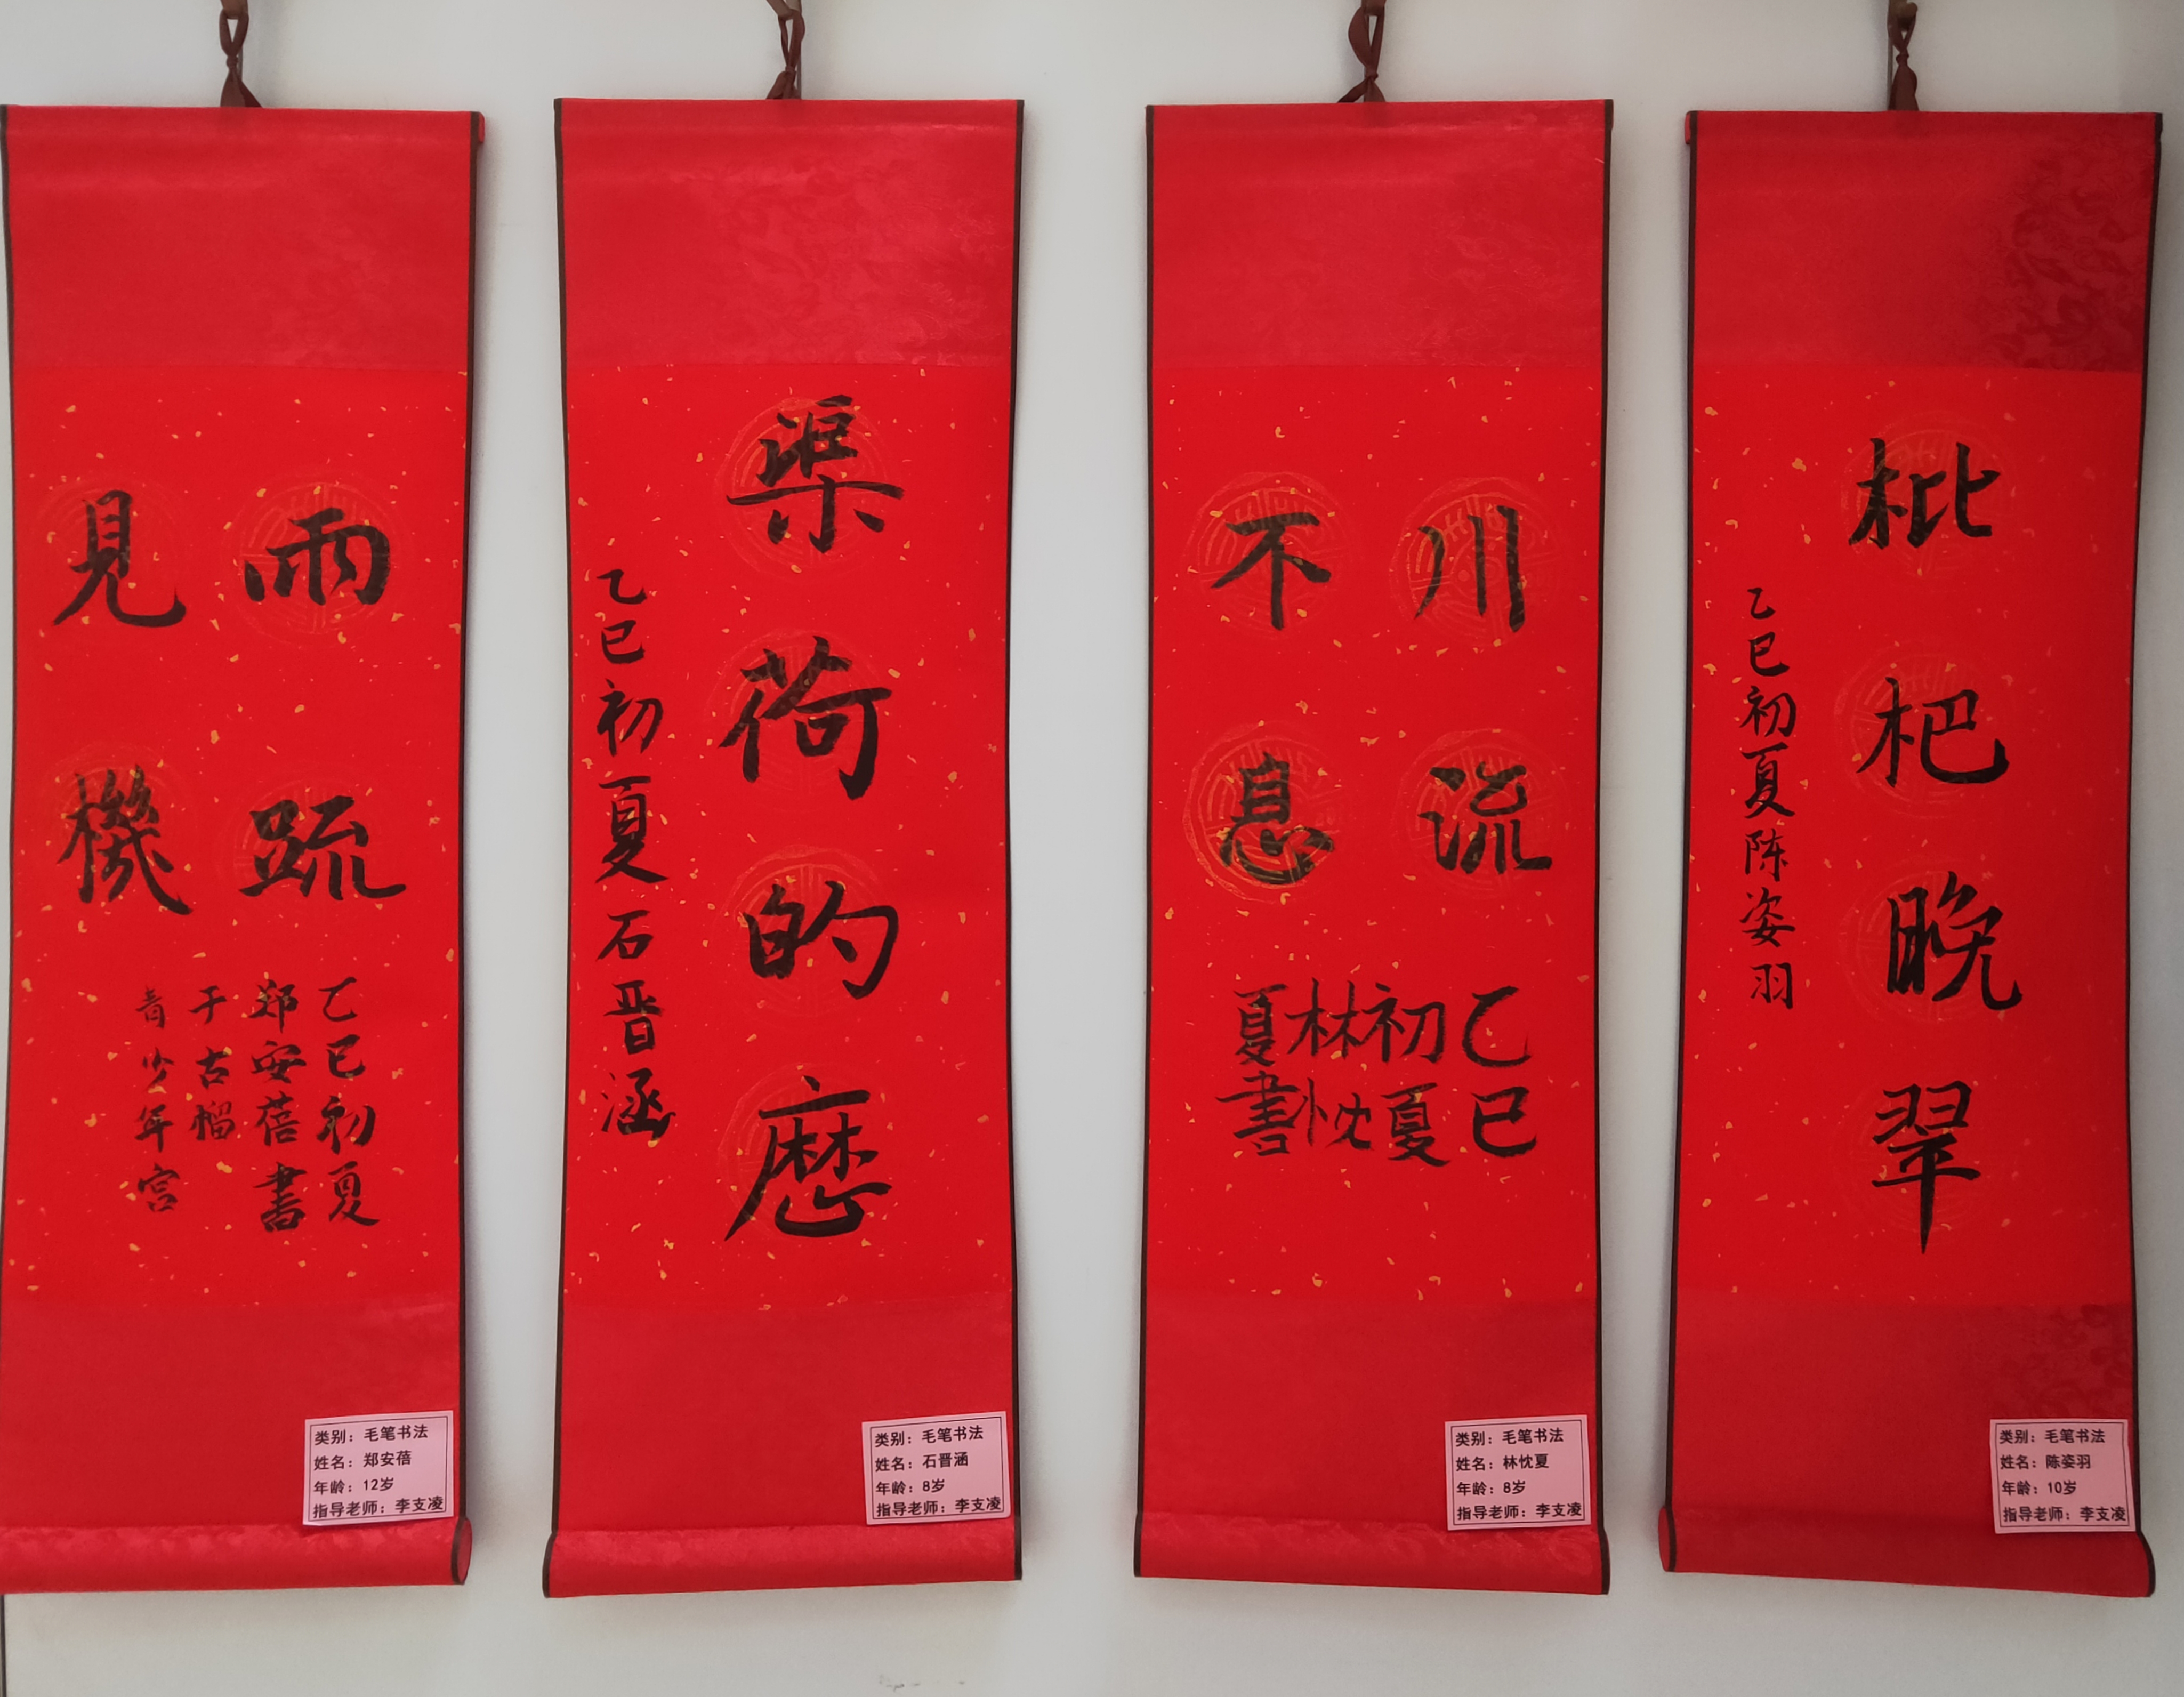 兩疏
見機
乙巳初夏
郑安蓓書
于古榴
青少年宫
类别：毛笔书法
姓名：郑安蓓
年龄：12岁
指导老师：李支凌
渠荷的歷
乙巳初夏石晋涵
类别：毛笔书法
姓名：石晋涵
年龄：8岁
指导老师：李支凌
川流
不息
乙巳
初夏
林忱
夏書
类别：毛笔书法
姓名：林忱夏
年龄：8岁
指导老师：李支凌
枇杷晚翠
乙巳初夏陈姿羽
类别：毛笔书法
姓名：陈姿羽
年龄：10岁
指导老师：李支凌